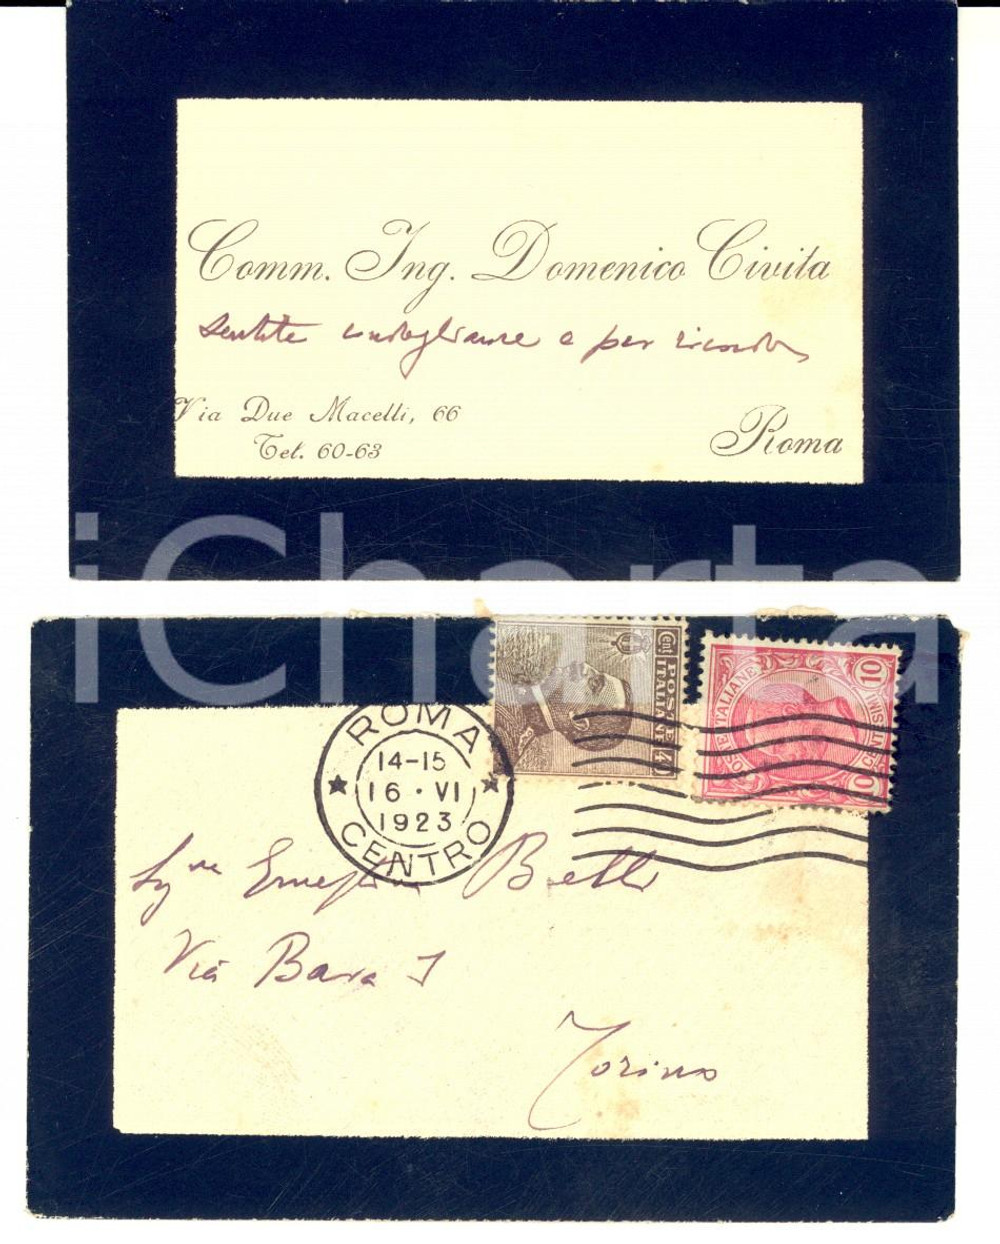 Comm. Ing. Domenico Civita
sentite condoglianze e per ricordo
Via Due Macelli, 66
Tel. 60-63
Roma
iCharta
ROMA
14-15
16·VI
1923
CENTRO
Cent.
POSTE
ITALIANE
POSTE ITALIANE
10
CENTESIMI
10
Betti
Via Bava
Torino